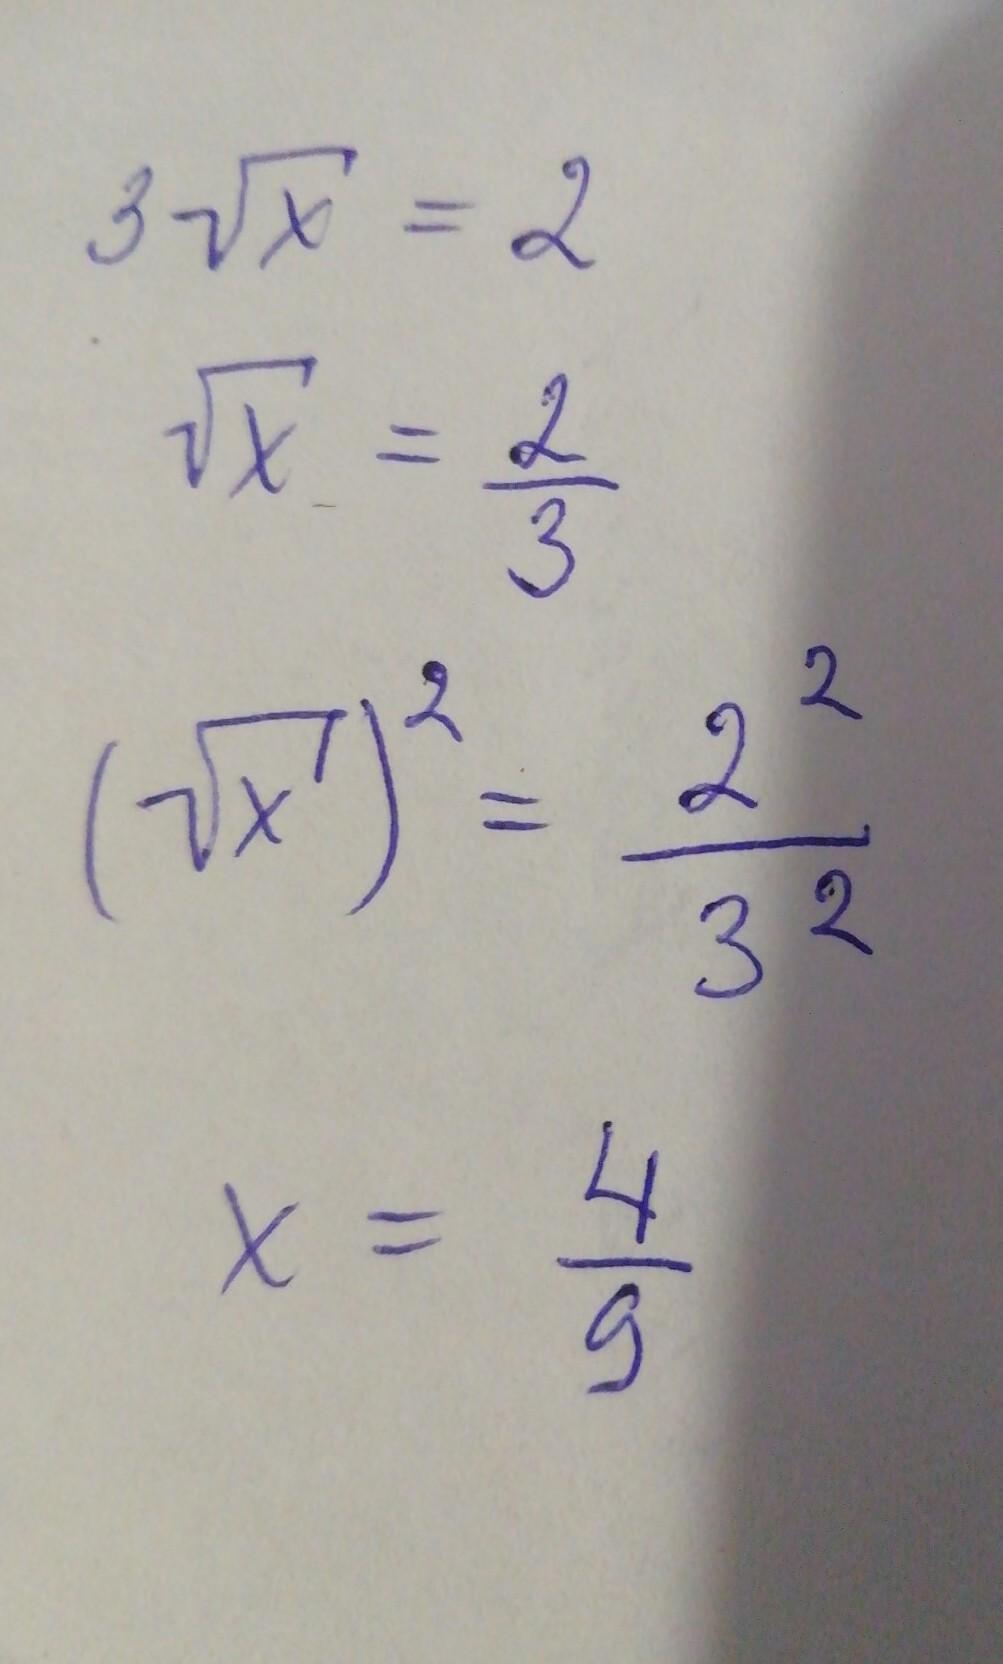 3√x = 2
√x = 2/3
(√x)² = 2²/3²
x = 4/9